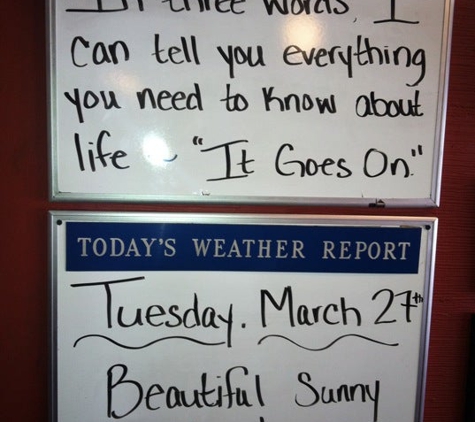 In three words, I
Can tell you everything
you need to know about
life ~ "It Goes On."
TODAY'S WEATHER REPORT
Tuesday. March 27th
Beautiful Sunny